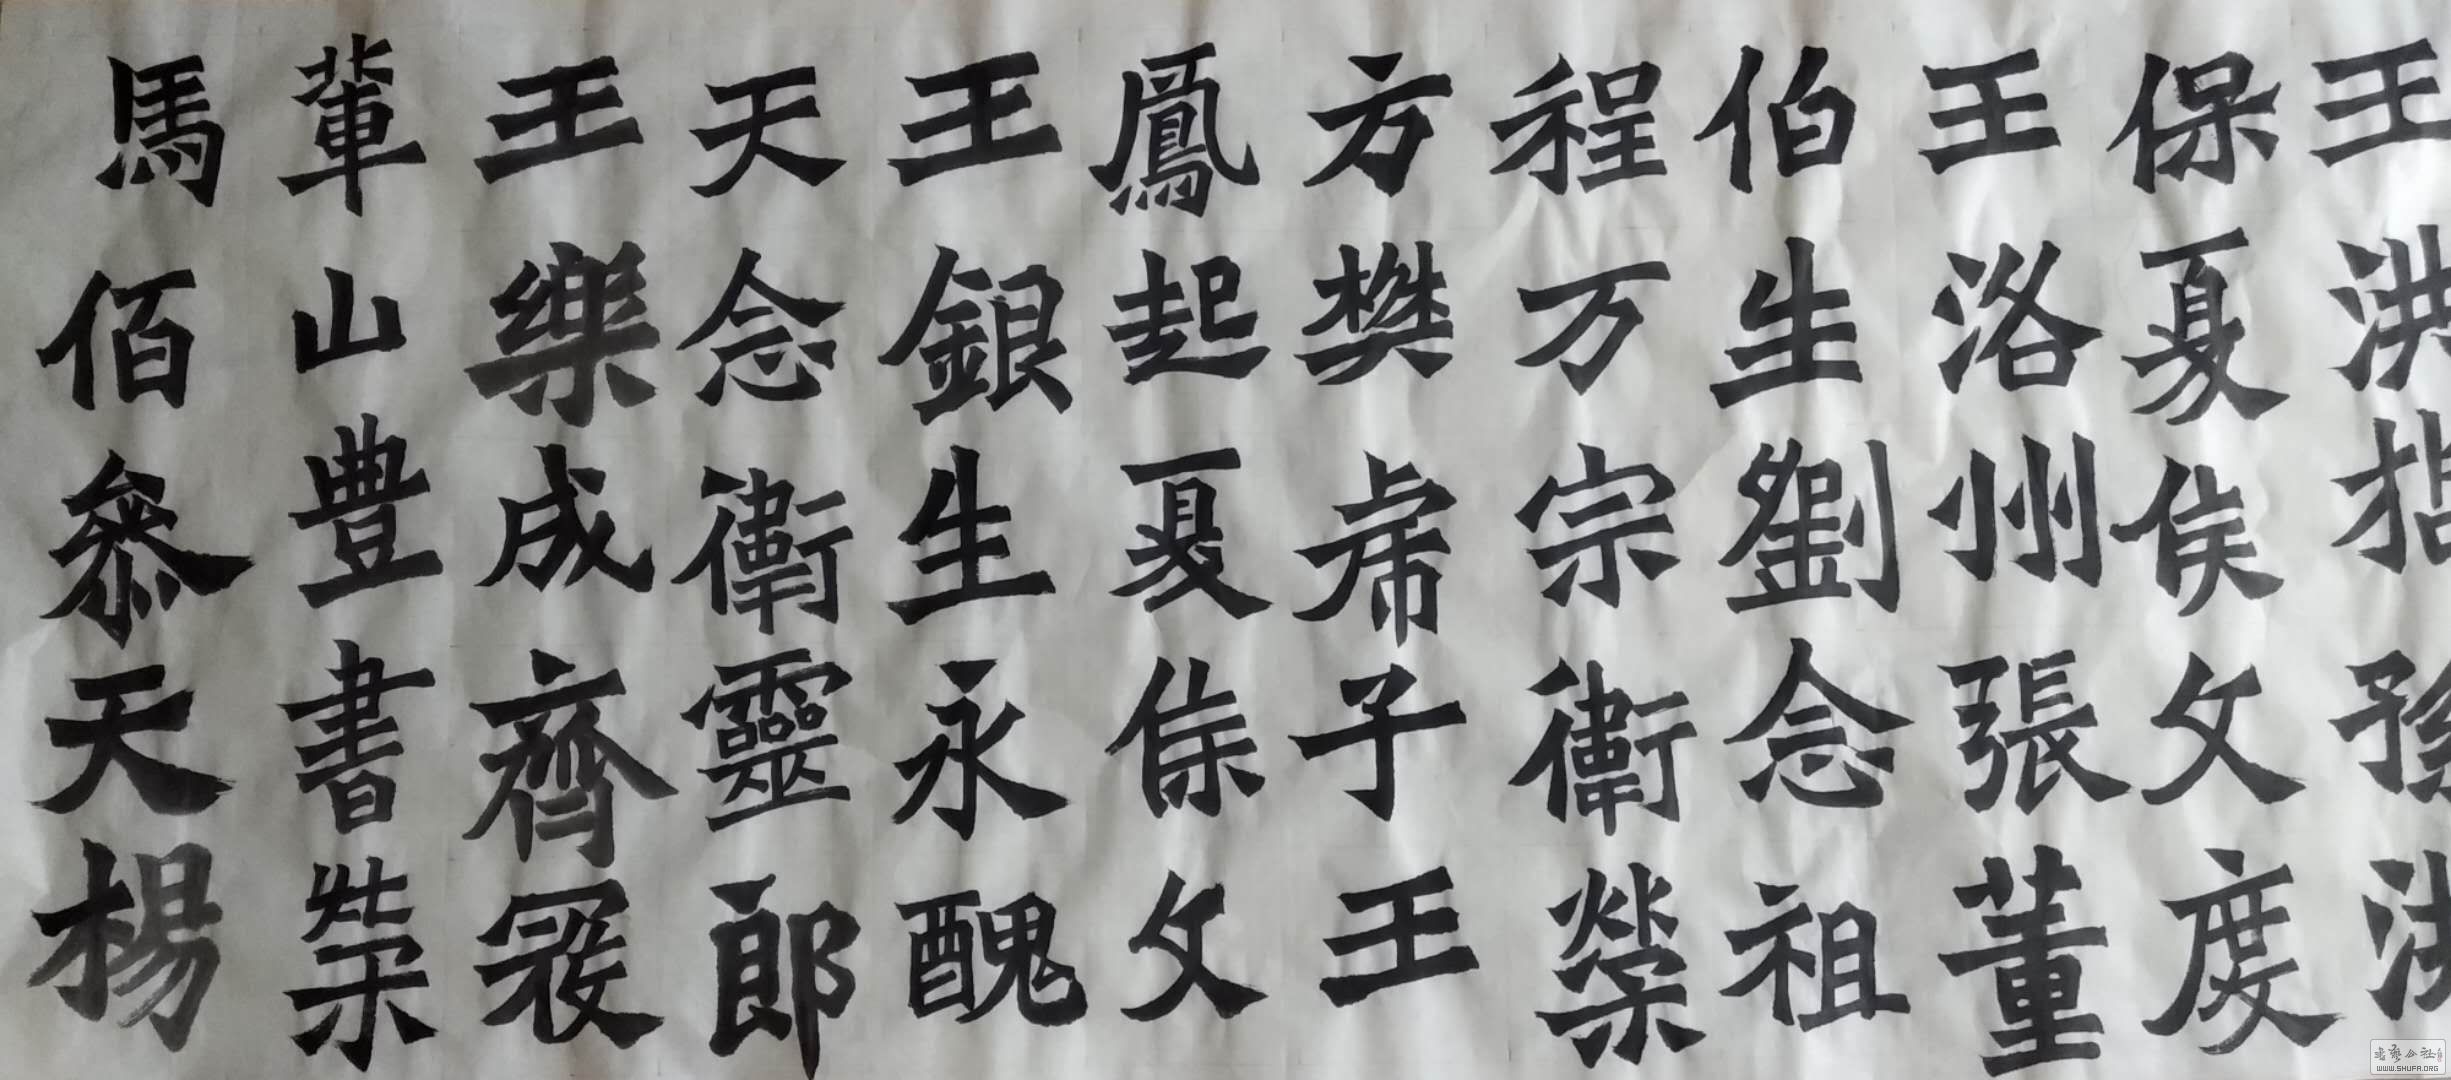 王洪指孫洪
保夏侯文度
王洛州張董
伯生劉念祖
程万宗衛榮
方樊虎子王
鳳起夏侯文
王銀生永醜
天念衛靈郎
王樂成齊冠
輩山豐書柴
馬佰叅天楊
WWW.SHUFA.ORG